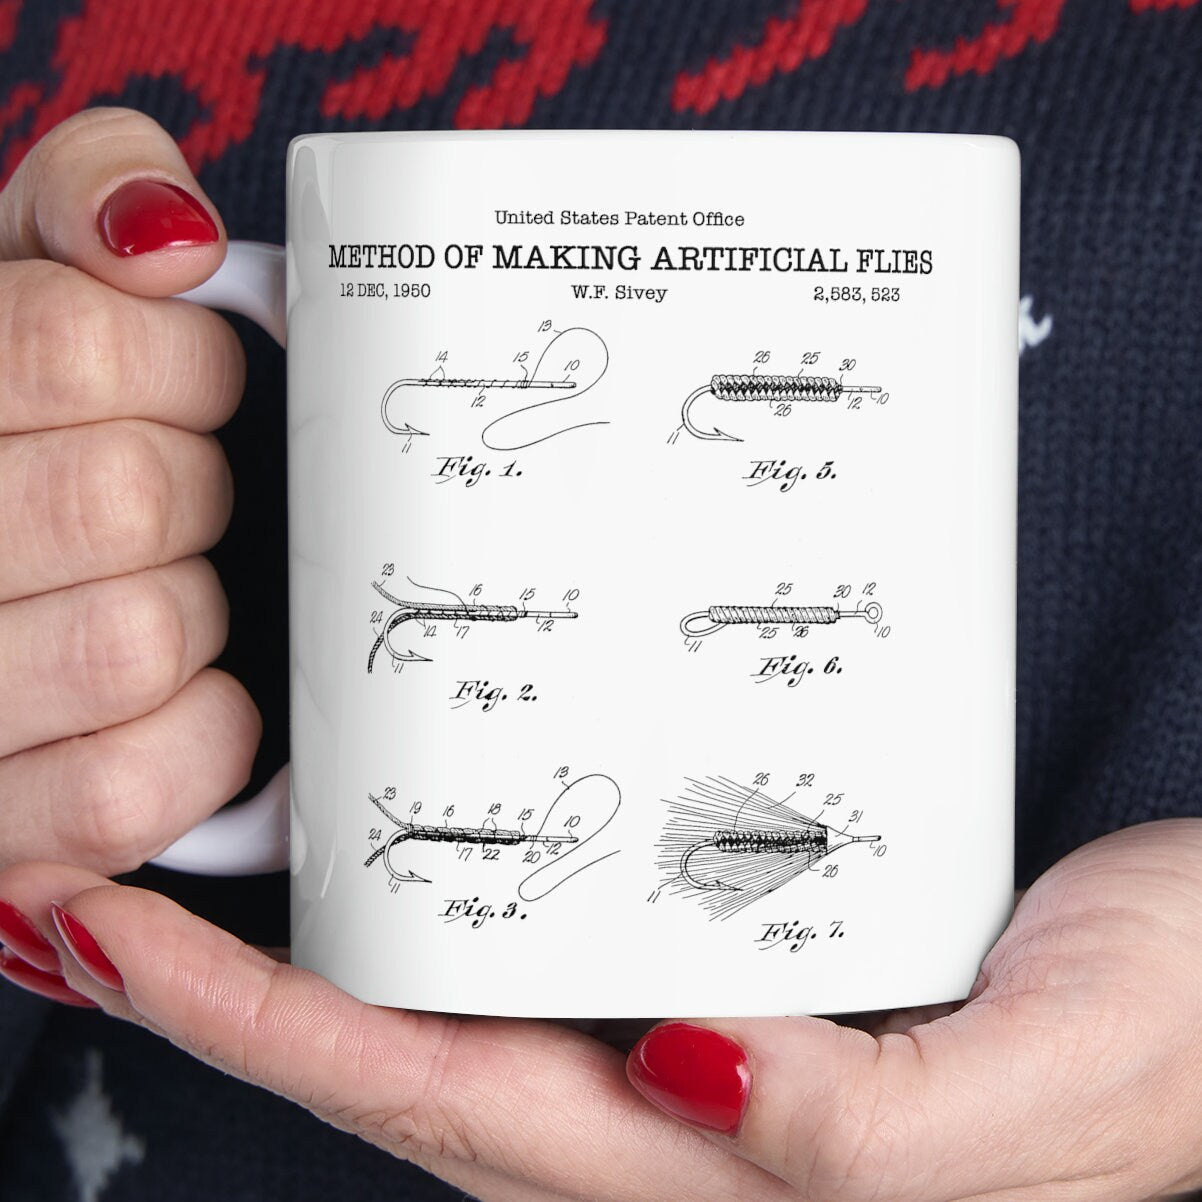 United States Patent Office
METHOD OF MAKING ARTIFICIAL FLIES
12 DEC, 1950 W.F. Sivey 2,583, 523
13
14 15 10
12
11
Fig. 1.
26 25 30
26 12 10
11
Fig. 5.
23 16 15 10
24 14 17 12
11
Fig. 2.
25 30 12
11 25 26 10
Fig. 6.
13
23 19 16 18 15 10
24 17 22 20 12
11
Fig. 3.
26 32 25 31
10
11 26
Fig. 7.